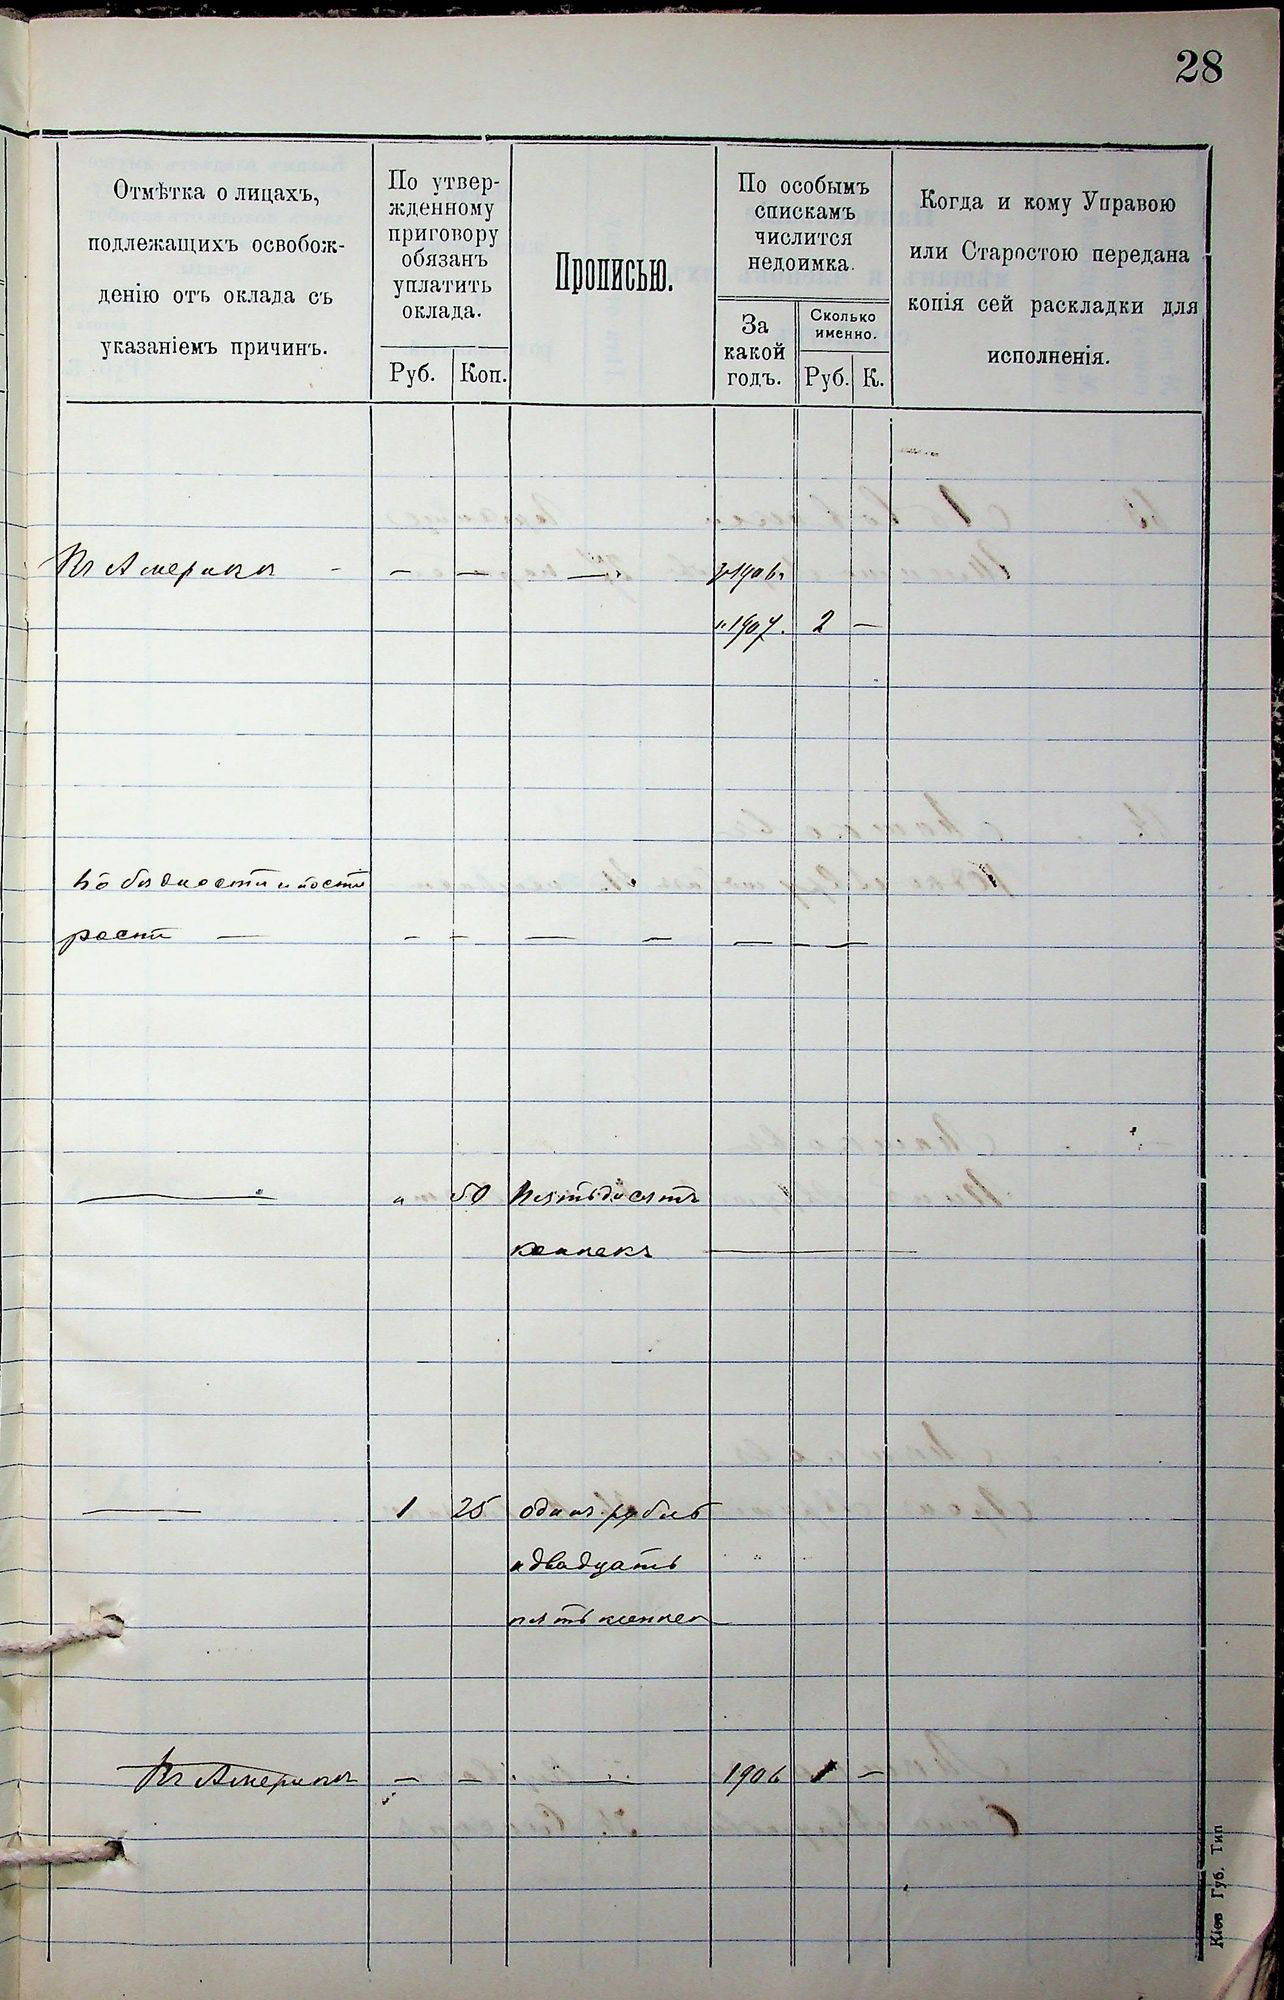 28
Отмѣтка о лицахъ,
подлежащихъ освобож-
денію отъ оклада съ
указаніемъ причинъ.
По утвер-
жденному
приговору
обязанъ
уплатить
оклада.
Руб.
Коп.
Прописью.
По особымъ
спискамъ
числится
недоимка.
За
какой
годъ.
Сколько
именно.
Руб.
К.
Когда и кому Управою
или Старостою передана
копія сей раскладки для
исполненія.
Въ Америкѣ - — — — 1906
1907. 2 —
по бѣдности и
— — — — — — — —
— " 50 Пятьдесятъ
копѣекъ —
— 1 25 одинъ рубль
и двадцать
пять копѣек
Въ Америкѣ — — — 1906 1 —
Кіев Губ. Тип